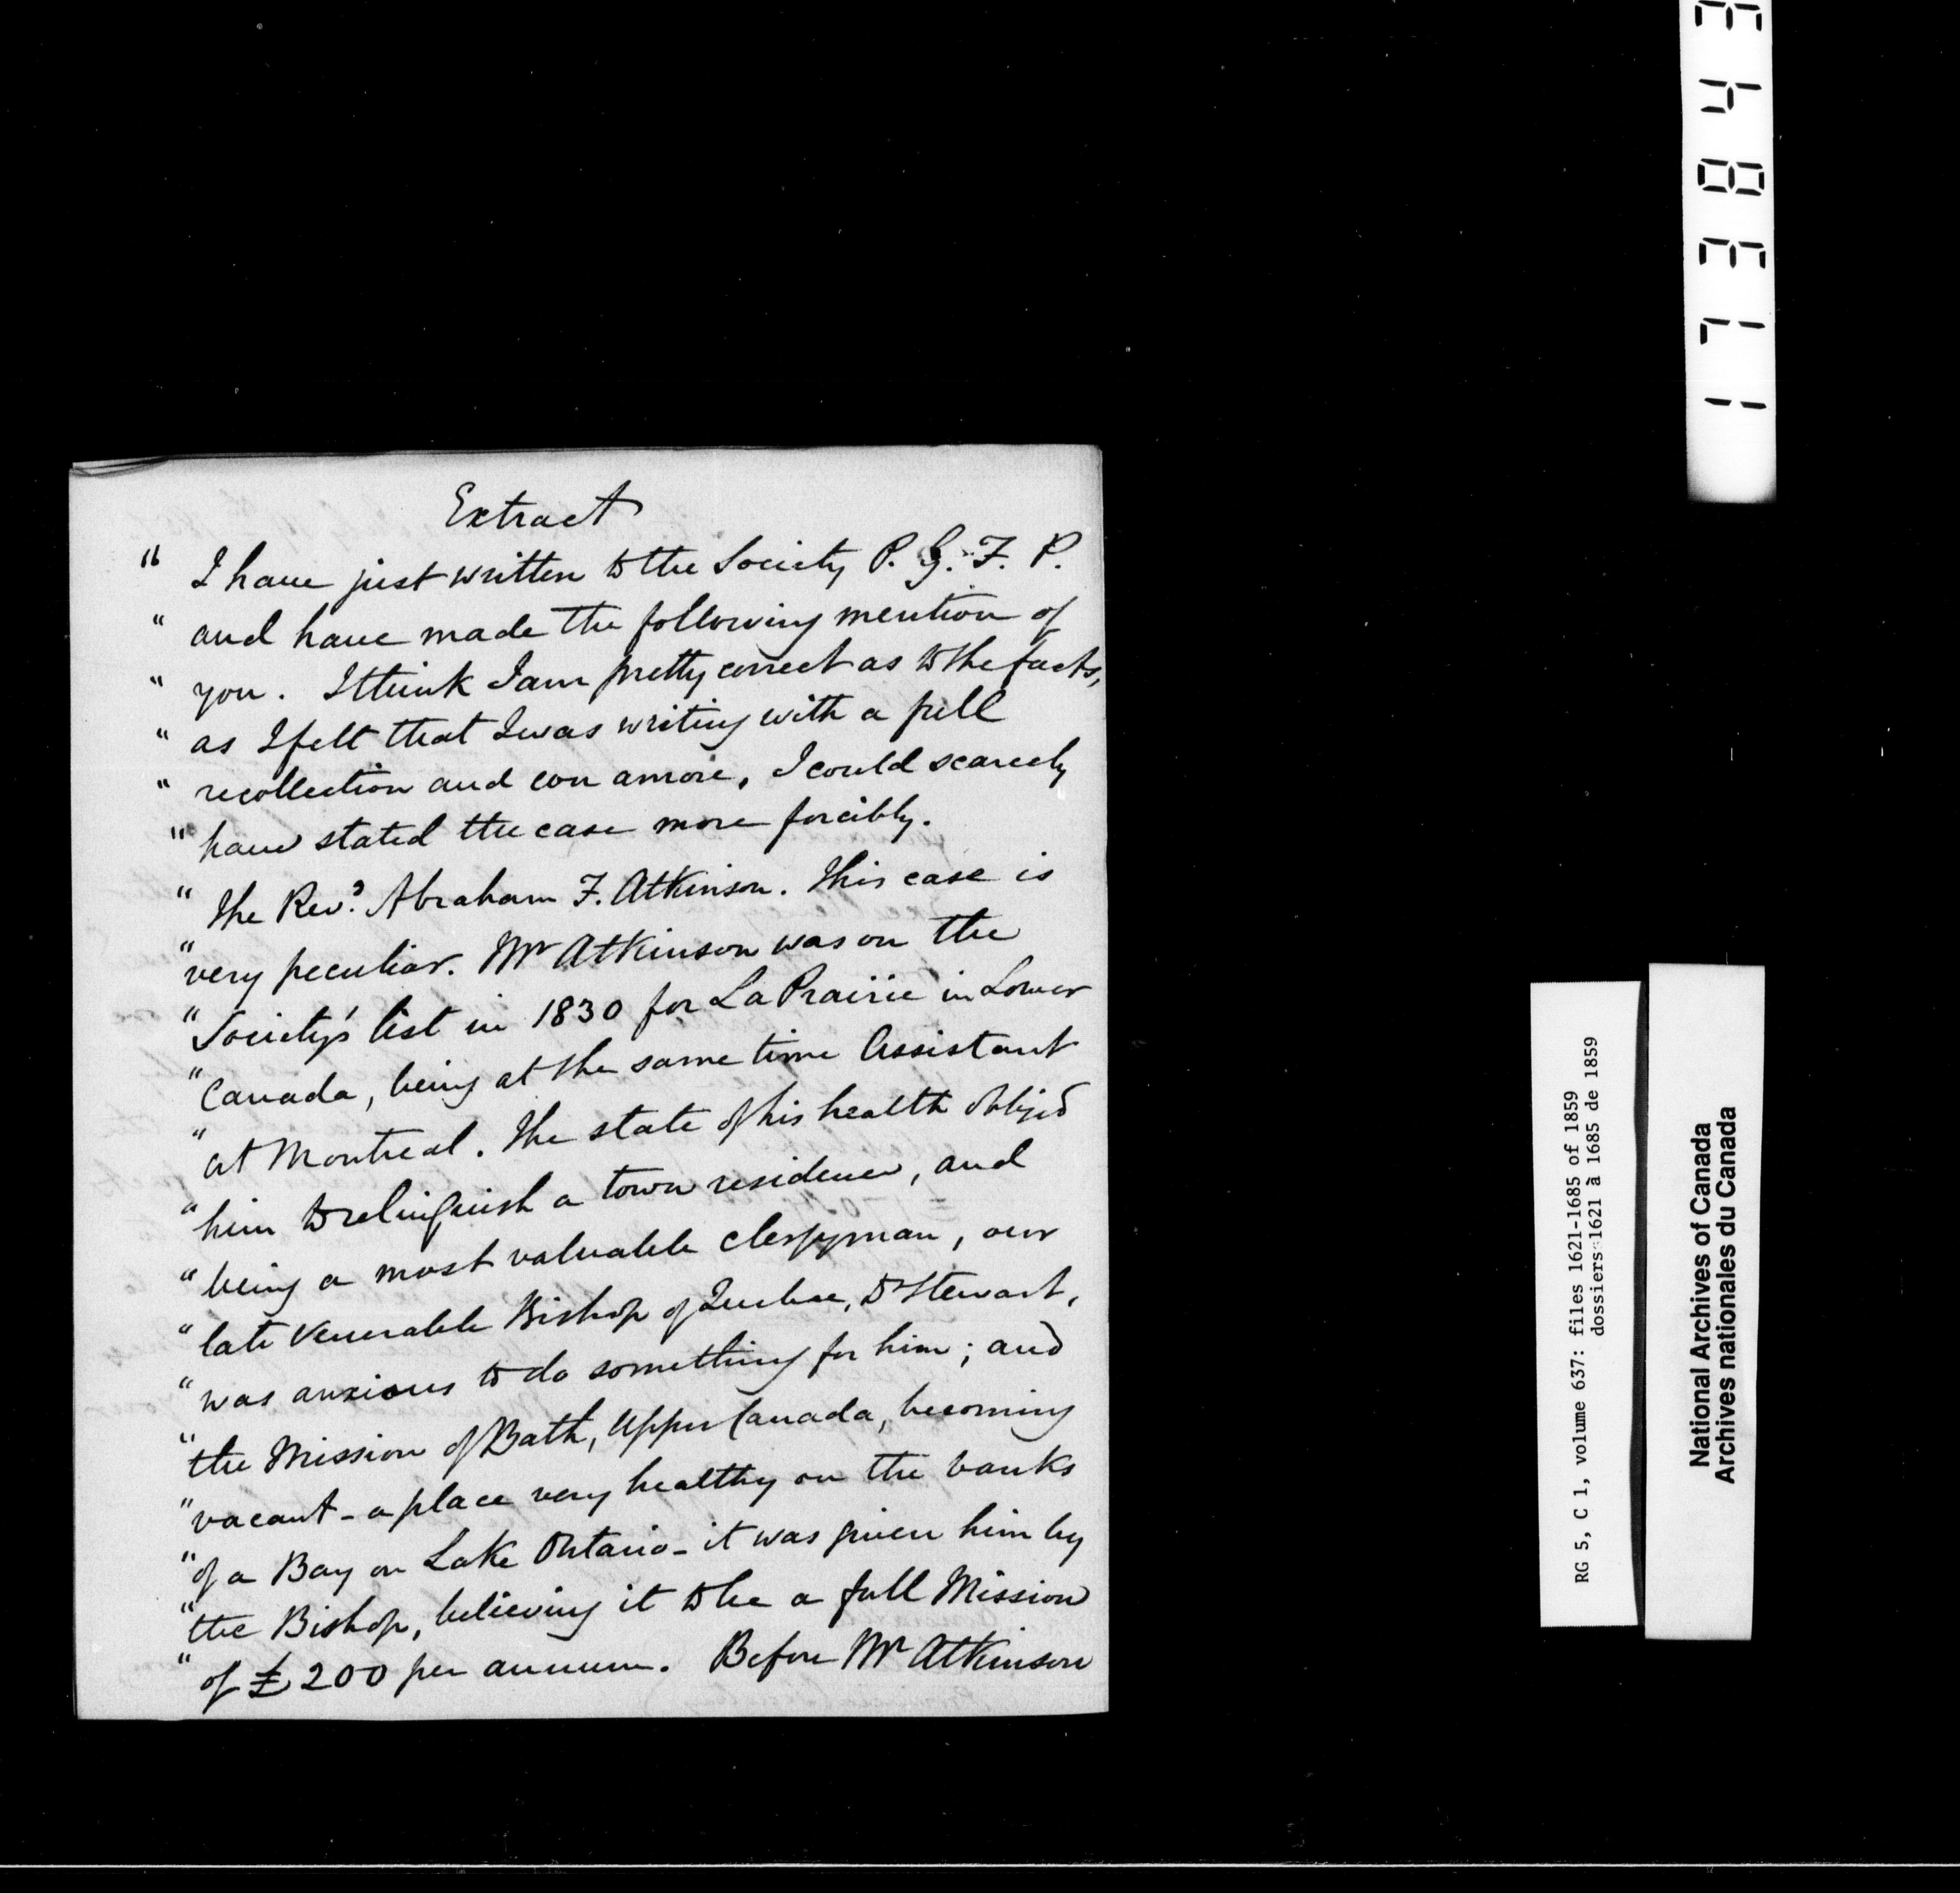 Extract
" I have just written to the Society P. G. F. P.
" and have made the following mention of
" you. I think I am pretty correct as to the facts,
" as I felt that I was writing with a full
" recollection and con amore, I could scarcely
" have stated the case more forcibly.
" The Revd. Abraham F. Atkinson. This case is
" very peculiar. Mr Atkinson was on the
" Society's list in 1830 for La Prairie in Lower
" Canada, being at the same time Assistant
" at Montreal. The state of his health obliged
" him to relinquish a town residence, and
" being a most valuable clergyman, our
" late venerable Bishop of Quebec, Dr Stewart,
" was anxious to do something for him; and
" the Mission of Bath, Upper Canada, becoming
" vacant - a place very healthy on the banks
" of a Bay on Lake Ontario - it was given him by
" the Bishop, believing it to be a full Mission
" of £200 per annum. Before Mr Atkinson
RG 5, C 1, volume 637: files 1621-1685 of 1859
dossiers 1621 à 1685 de 1859
National Archives of Canada
Archives nationales du Canada